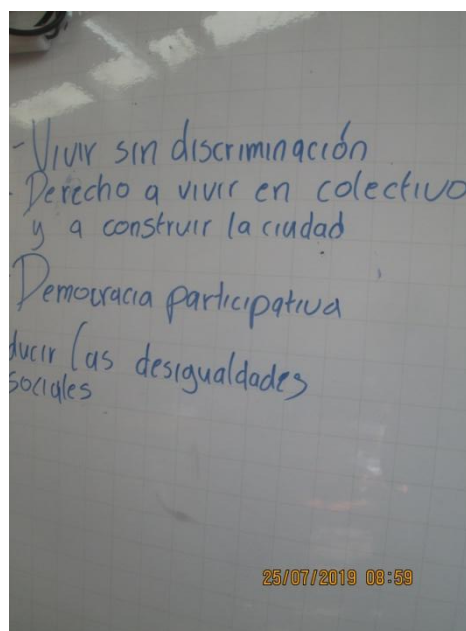 - Vivir sin discriminación
- Derecho a vivir en colectivo
y a construir la ciudad
Democracia participativa
ducir las desigualdades
sociales
25/07/2019 08:59